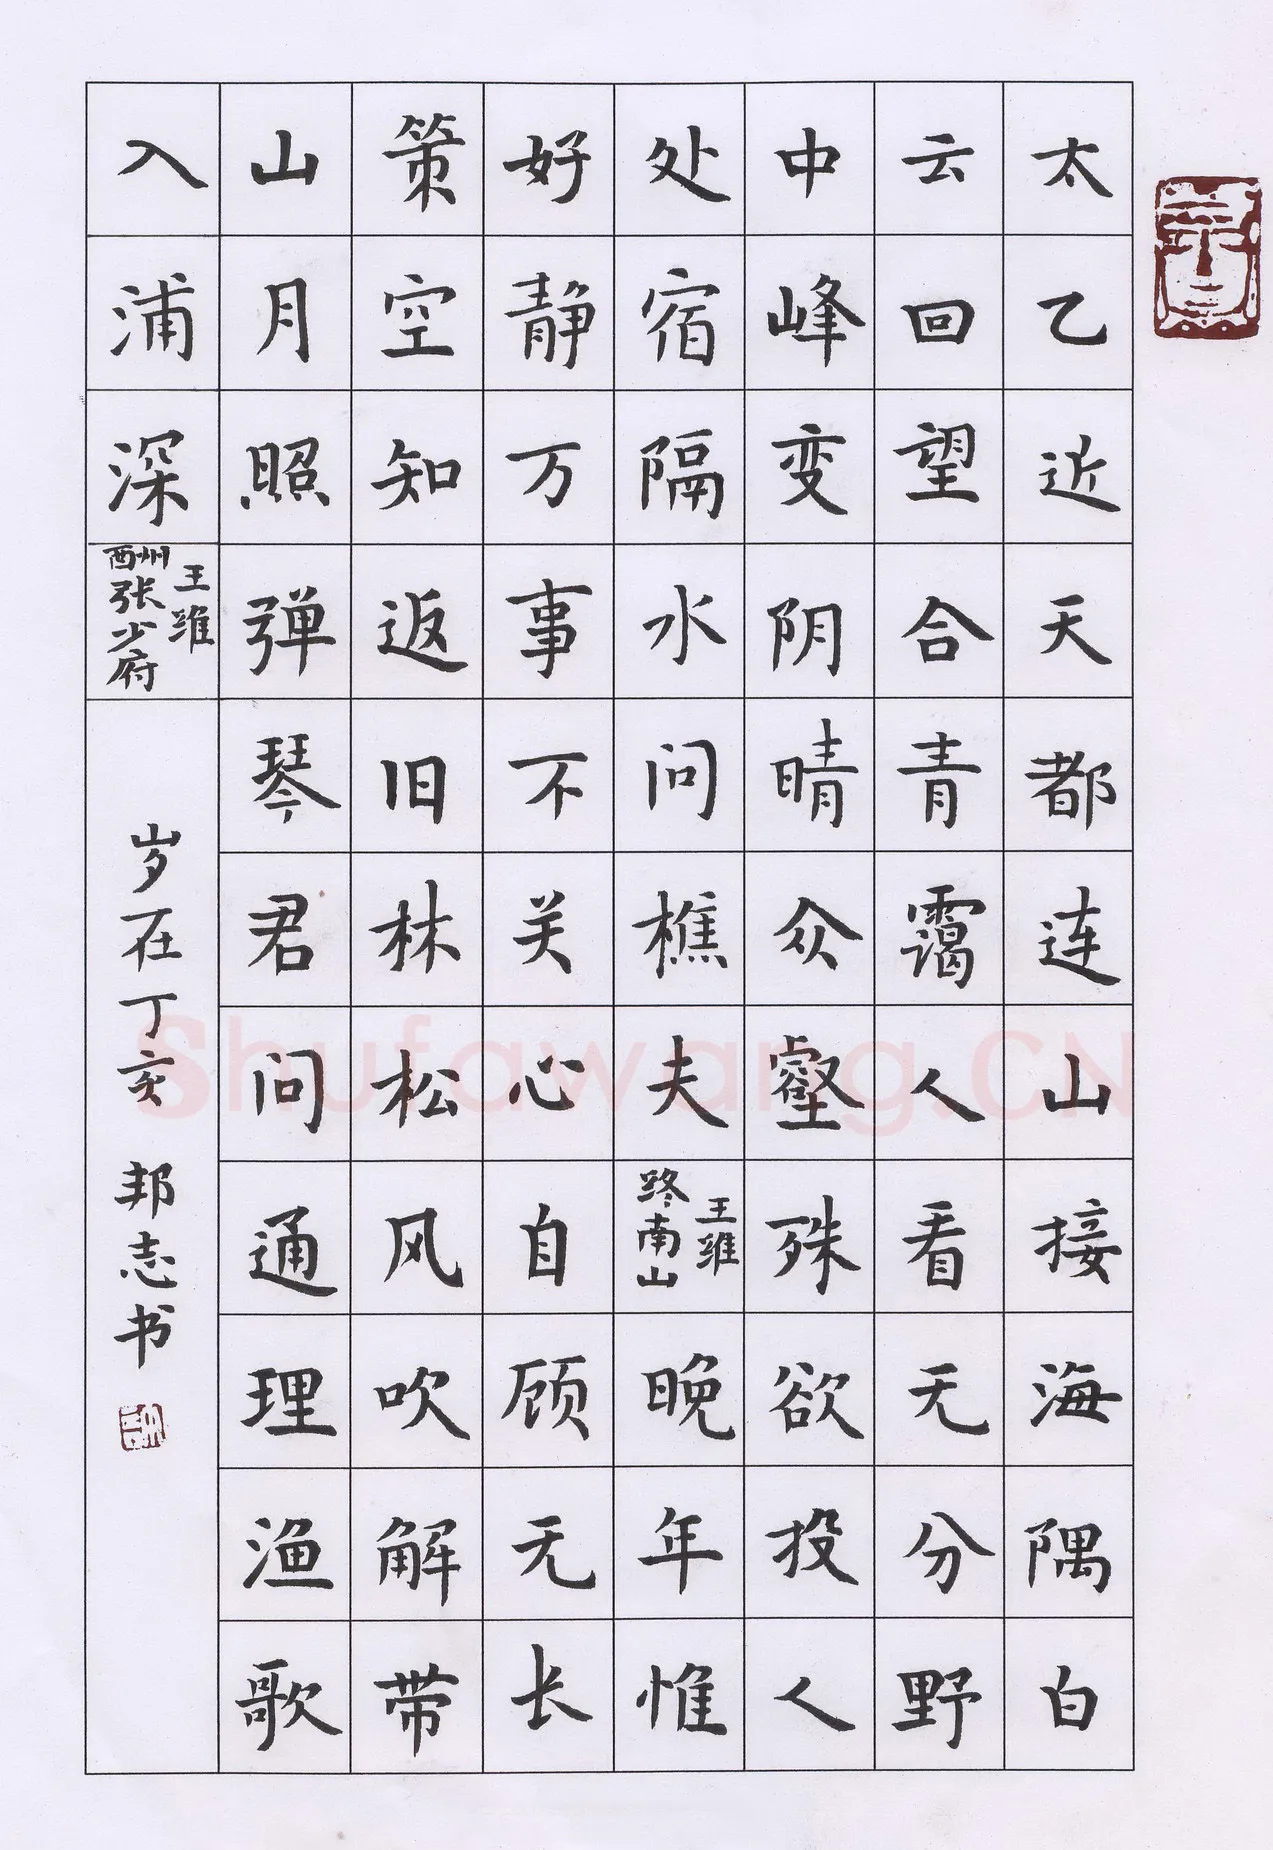 太乙近天都连山接海隅白
云回望合青霭人看无分野
中峰变阴晴众壑殊欲投人
处宿隔水问樵夫
王维
终南山
晚年惟
好静万事不关心自顾无长
策空知返旧林松风吹解带
山月照弹琴君问通理渔歌
入浦深
王维
酬张少府
岁在丁亥 邦志书
Shufawang.CN